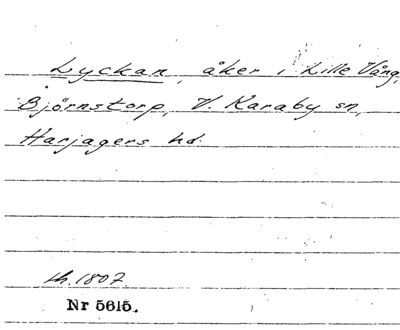 Lyckan, åker i Lille Vång,
Björnstorp, V. Karaby sn,
Harjagers hd.
th. 1807
Nr 5615.